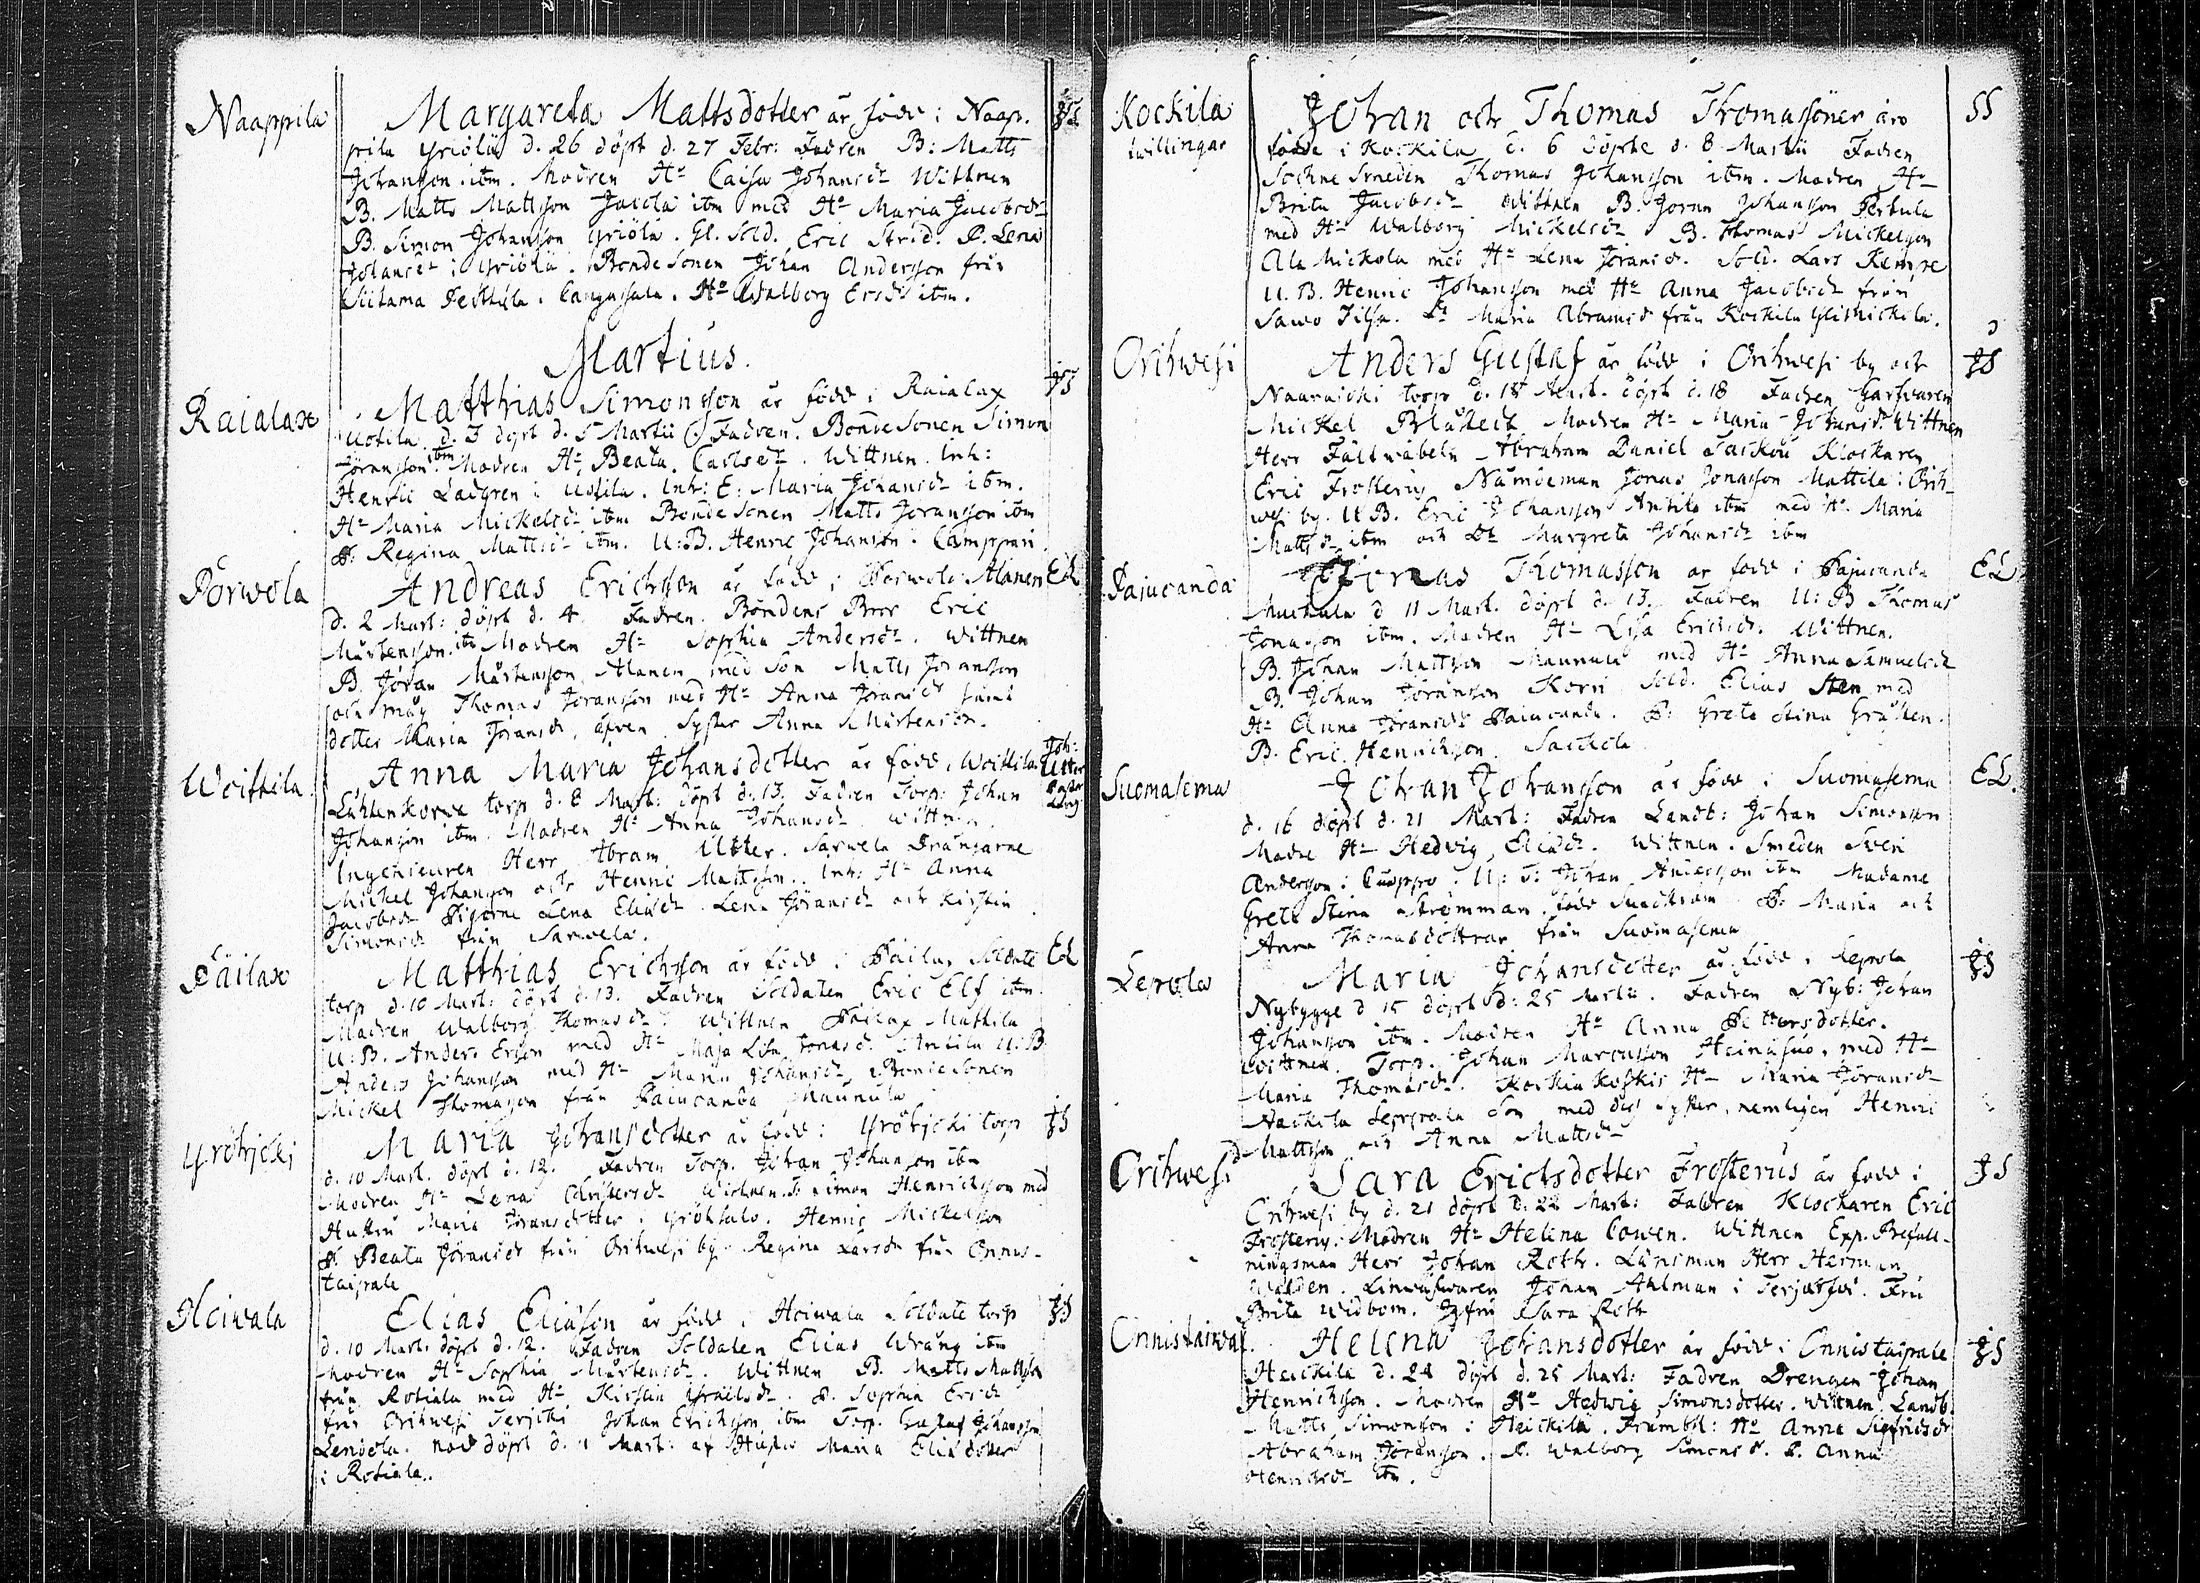 Naappila
Margareta Mattsdotter är född i Naap-
pila Yriölä d. 26 döpt d. 27 Febr: Fadren B: Matts
Johansson ibm. Modren Ha Caisa Johansdr Wittnen
B. Matts Mattsson Jaccla ibm med Ha Maria Jacobsdr
B. Simon Johansson Yriöla. Gl. Sold. Eric Strid. P. Lena
i Yriölä. Bondesonen Johan Andersson från
Cangasala. Ha Walborg Ersdr ibm.
Martius.
Raialax
Matthias Simonsson är född i Raialax
Uotila d. 3 döpt d. 5 Martii Fadren. Bondesonen Simon
Jöransson ibm Modren Ha Beata Carlsdr. Wittnen. Inh:
Henric Ladgren i Uotila. Inh: E: Maria Johansdr ibm.
Ha Maria Mickelsdr ibm Bondesonen Matts Joransson ibm
P. Regina Mattsdr ibm. U:B. Henric Johansson. Camppari
Pörwola
Andreas Ericksson är född i Porwola Alanen EL
d. 2 Mart: döpt d. 4. Fadren. Bondens Bror Eric
Mårtensson ibm Modren Ha Sophia Andersdr. Wittnen
B. Jöran Mårtensson Alanen med Son Matts Joransson
och måg Thomas Joransson med Ha Anna Joransdr samt
dotter Maria Joransdr, äfven Syster Anna Mårtensdr.
Woittila
Anna Maria Johansdotter är född i Woittila
Lähtenkorwa torp d. 8 Mart: döpt d. 13. Fadren Torp: Johan
Johansson ibm. Modren Ha Anna Johansdr. Wittnen.
Ingenieuren Herr Abram Utter. Sarwela Drängarne
Mickel Johansson och Henric Mattsson. Inh: Ha Anna
Jacobsdr Pigorne Lena Eliasdr Lena Jöransdr och Kirstin
Simonsdr från Sarwela.
Päilax
Matthias Ericksson är född i Päilax Soldate EL
torp d. 10 Mart: döpt d. 13. Fadren Soldaten Eric Elf ibm.
Modren Walborg Thomasdr. Wittnen Pailax Mattila
U:B. Anders Ersson med Ha Maja Lisa Jonasd. Antila U:B
Anders Johansson med Ha Maria Johansdr Bondesonen
Mickel Thomasson från Paiucanda Maunula
Maria Johansdotter är född i torp
d. 10 Mart. döpt d. 12. Fadren Torp. Johan Johansson ibm
Modren Ha Lena Christersdr Wittnen. Simon Henricksson med
Hustru Maria Joransdotter i Henric Mickelsson
P. Beata Göransdr från Orihwesi by. Regina Larsdr från Onnis-
taipale
Hciwala
Elias Eliasson är född i Hciwala Soldate torp
d. 10 Mart: döpt d. 12. Fadren Soldaten Elias Wrång ibm
Modren Ha Sophia Mårtensdr. Wittnen B. Matts Mattsson
från Rotiala med Ha Kirstin P. Sophia Ersdr
från Orihwesi Johan Ericksson ibm Torp. Gustaf Johansson
Lendola. nöd döpt d. 11 Mart: af Hustru Maria Eliædotter
i Rotiala.
Kockila
twillingar
Johan och Thomas Thomassöner äro SS
födde i Kockila d. 6 döpte d. 8 Martii Fadren
Sockne Smeden Thomas Johansson ibm. Modren Ha
Brita Jacobsdr Wittnen B. Joran Johansson Perkula
med Ha Walborg Mickelsdr B. Thomas Mickelsson
Ala Mickola med Ha Lena Joransdr. Sold. Lars Kempe
U. B. Henric Johansson med Ha Anna Jacobsdr från
Sawo Maria Abramsdr från Kockila Ylimickila.
Orihwesi
Anders Gustaf är född i Orihwesi by och
torp d. 18 Mart. döpt d. 18 Fadren Garfvaren
Mickel Modren Ha Maria Johansdr Wittnen
Herr Fältwäbeln Abraham Daniel Klockaren
Eric Frosterus Nämdeman Jonas Jonasson Mattila i Orih-
wesi by. U B. Eric Johansson Anttila ibm med Ha Maria
Mattsdr ibm och Dr Margreta Johansdr ibm
Pajucanda
Jonas Thomasson är född i Pajucanda EL
d 11 Mart. döpt d. 13. Fadren U: B Thomas
Jonasson ibm. Modren Ha Lisa Ericsdr. Wittnen.
B. Johan Mattsson Maunula med Ha Anna Samuelsdr
B. Johan Joransson Korri Sold. Elias Sten med
Ha Anna Joransdr Paiucanda. P. Greta Stina
B. Eric Henricksson
Suomasema
Johan Johansson är född i Suomasema EL.
d. 16 döpt d. 21 Mart: Fadren Landb: Johan Simonsson
Modre Ha Hedvig Eliædr. Wittnen. Smeden Sven
Andersson i U: T: Johan Andersson ibm Madame
Greta Stina Strömman född P: Maria och
Anna Thomasdöttrar från Suomasema
Lepola
Maria Johansdotter är född i Lepola
Nybygge d 15 döpt d: 25 Martii. Fadren Nyb: Johan
Johansson ibm. Modren Ha Anna Pettersdotter.
Wittnen. Torp. Johan Marcusson Heinäsuo, med Ha
Maria Thomasdr. Ha Maria Jöransdr
Son med dess Syster, nemligen Henric
Mattsson och Anna Mattsdr
Orihwesi
Sara Ericksdotter Frosterus är född i
Orihwesi by d. 21 döpt d. 22 Mart: Fadren Klockaren Eric
Frosterus. Modren Ha Helena Cowen. Wittnen Exp. Befall-
ningsman Herr Johan Roth. Länsman Herr Herman
Walden. Johan Ahlman i Fru
Brita Widbom. Jgfru Sara Roth
Onnistaiwal.
Helena Johansdotter är född i Onnistaipale
Heickila d. 24 döpt d. 25 Mart: Fadren Drengen Johan
Henricksson. Modren Ha Hedwig Simonsdotter. Wittnen Landb.
Matts Simonsson i Heickilä. Ha Anna Sigfridsdr
Abraham Jöransson. P. Walborg Simonsd. P. Anna
Henricksdr ibm.